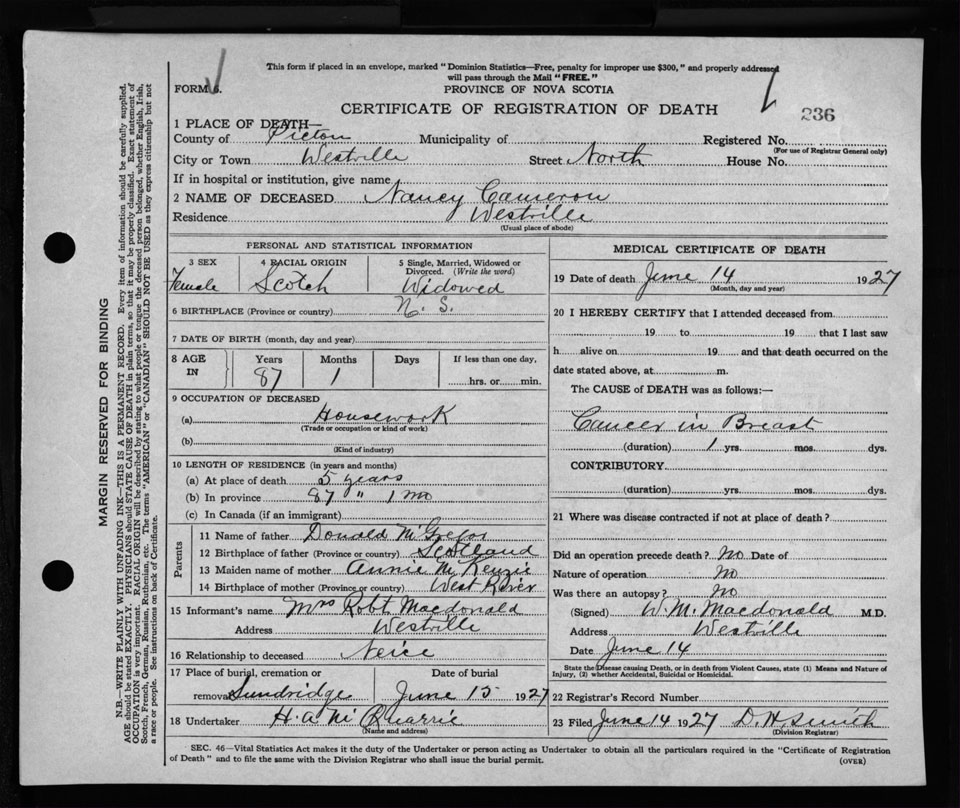 This form if placed in an envelope, marked "Dominion Statistics—Free, penalty for improper use $300," and properly addressed
will pass through the Mail "FREE."
FORM 6.
PROVINCE OF NOVA SCOTIA
CERTIFICATE OF REGISTRATION OF DEATH
236
1 PLACE OF DEATH—
County of Pictou Municipality of Registered No.
(For use of Registrar General only)
City or Town Westville Street North House No.
If in hospital or institution, give name
2 NAME OF DECEASED Nancy Cameron
Residence Westville
(Usual place of abode)
PERSONAL AND STATISTICAL INFORMATION
3 SEX 4 RACIAL ORIGIN 5 Single, Married, Widowed or
Divorced. (Write the word)
Female Scotch Widowed
6 BIRTHPLACE (Province or country) N. S.
7 DATE OF BIRTH (month, day and year)
8 AGE IN Years Months Days If less than one day,
87 1 hrs. or min.
9 OCCUPATION OF DECEASED
(a) Housework
(Trade or occupation or kind of work)
(b)
(Kind of industry)
10 LENGTH OF RESIDENCE (in years and months)
(a) At place of death 5 years
(b) In province 87 " 1 mo
(c) In Canada (if an immigrant)
Parents
11 Name of father Donald McGregor
12 Birthplace of father (Province or country) Scotland
13 Maiden name of mother Annie McKenzie
14 Birthplace of mother (Province or country) West River
15 Informant's name Mrs Robt Macdonald
Address Westville
16 Relationship to deceased Neice
17 Place of burial, cremation or Date of burial
removal Sundridge June 15 1927
18 Undertaker H. A. McQuarrie
(Name and address)
MEDICAL CERTIFICATE OF DEATH
19 Date of death June 14 1927
(Month, day and year)
20 I HEREBY CERTIFY that I attended deceased from
19 to 19 that I last saw
h alive on 19 and that death occurred on the
date stated above, at m.
The CAUSE of DEATH was as follows:—
Cancer in Breast
(duration) 1 yrs. mos. dys.
CONTRIBUTORY
(duration) yrs. mos. dys.
21 Where was disease contracted if not at place of death?
Did an operation precede death? No Date of
Nature of operation No
Was there an autopsy? No
(Signed) W. M. Macdonald M.D.
Address Westville
Date June 14
State the Disease causing Death, or in death from Violent Causes, state (1) Means and Nature of
Injury, (2) whether Accidental, Suicidal or Homicidal.
22 Registrar's Record Number
23 Filed June 14 1927 D. H. Smith
(Division Registrar)
SEC. 46—Vital Statistics Act makes it the duty of the Undertaker or person acting as Undertaker to obtain all the particulars required in the "Certificate of Registration
of Death" and to file the same with the Division Registrar who shall issue the burial permit.
(OVER)
MARGIN RESERVED FOR BINDING
N.B.—WRITE PLAINLY WITH UNFADING INK—THIS IS A PERMANENT RECORD. Every item of information should be carefully supplied.
AGE should be stated EXACTLY. PHYSICIANS should STATE CAUSE OF DEATH in plain terms, so that it may be properly classified. Exact statement of
OCCUPATION is very important. RACIAL ORIGIN will be described by stating to what people or tongue the deceased person belonged, whether English, Irish,
Scotch, French, German, Russian, Ruthenian, etc. The terms "AMERICAN" or "CANADIAN" SHOULD NOT BE USED as they express citizenship but not
a race or people. See instructions on back of Certificate.